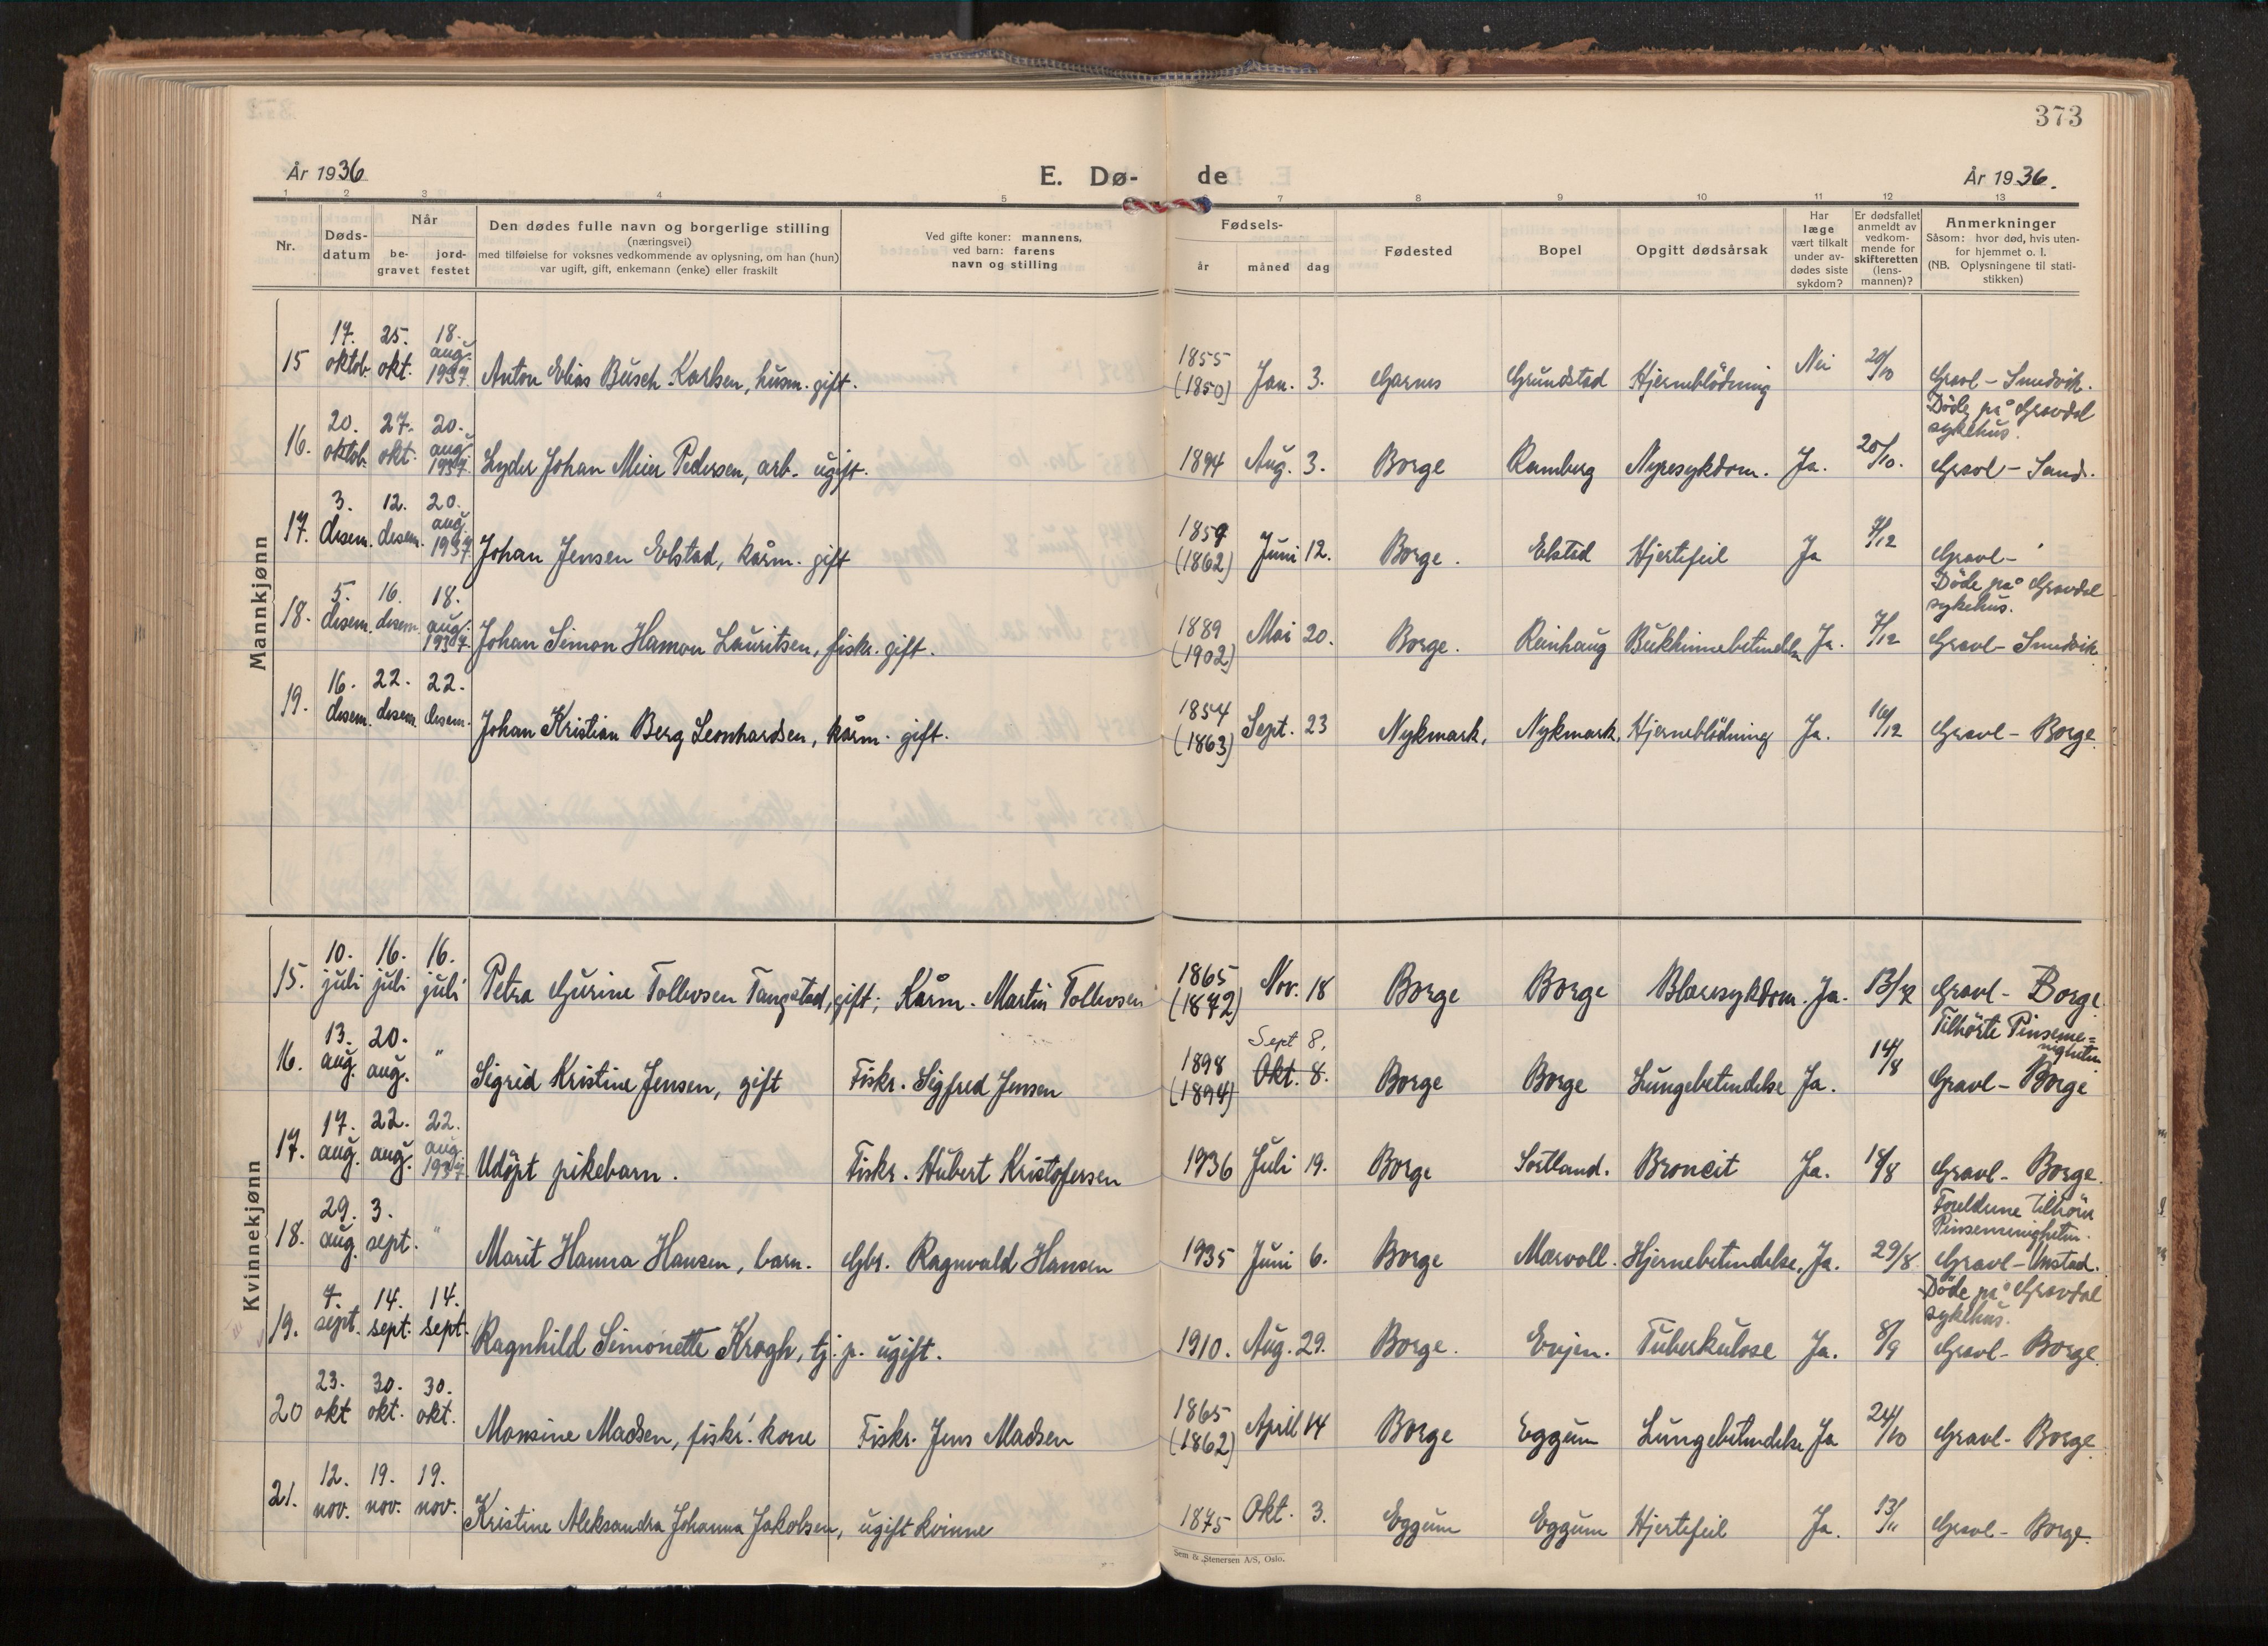 373
År 1936
E. Dø-
de
År 1936.
1 2 3 4 5 7 8 9 10 11 12 13
Nr.
Døds-
datum
Når
be-
gravet
jord-
festet
Den dødes fulle navn og borgerlige stilling
(næringsvei)
med tilføielse for voksnes vedkommende av oplysning, om han (hun)
var ugift, gift, enkemann (enke) eller fraskilt
Ved gifte koner: mannens,
ved barn: farens
navn og stilling
Fødsels-
år måned dag
Fødested
Bopel
Opgitt dødsårsak
Har
læge
vært tilkalt
under av-
dødes siste
sykdom?
Er dødsfallet
anmeldt av
vedkom-
mende for
skifteretten
(lens-
mannen)?
Anmerkninger
Såsom: hvor død, hvis uten-
for hjemmet o. l.
(NB. Oplysningene til stati-
stikken)
Mannkjønn
15 17. oktob. 25. okt. 18. aug. 1937 Anton Elias Busch Karlsen, husm. gift. 1855 (1850) Jan. 3. Garnes Grundstad Hjerneblödning Nei 20/10 Gravl - Sundvik.
16. 20. oktob. 27. okt. 20. aug. 1937. Lyder Johan Meier Pedersen, arb. ugift. 1894 Aug. 3. Borge Ramberg Nyresykdom. Ja. 20/10. Döde på Gravdal sykehus. Gravl - Sand.
17. 3. desem. 12. desem. 20. aug. 1937 Johan Jensen Elstad, kårm. gift 1859 (1862) Juni 12. Borge. Elstad Hjertefeil Ja 7/12 Gravl -
18. 5. desem. 16. desem. 18. aug. 1937. Johan Simon Hamon Lauritsen, fiskr. gift. 1889 (1902) Mai 20. Borge. Reinhaug Bukhinnebetendelse Ja. 7/12 Döde på Gravdal sykehus. Gravl - Sundvik
19. 16. desem. 22. desem. 22. desem. Johan Kristian Berg Leonhardsen, kårm. gift. 1854 (1863) Sept. 23 Nykmark, Nykmark, Hjerneblödning Ja. 16/12 Gravl - Borge.
Kvinnekjønn
15. 10. juli 16. juli 16. juli Petra Gurine Tollevsen Tangstad, gift; Kårm. Martin Tollevsen 1865 (1872) Nov. 18 Borge Borge Blæresykdom. Ja. 13/7 Gravl - Borge.
16. 13. aug. 20. aug. " Sigrid Kristine Jensen, gift Fiskr. Sigfred Jensen 1898 (1894) Sept 8. Okt. 8. Borge Borge Lungebetendelse Ja. 14/8 Tilhörte Pinseme=nigheten Gravl - Borge
17. 17. aug. 22. aug. 22. aug. 1937. Udöpt pikebarn. Fiskr. Hubert Kristofersen 1936 Juli 19. Borge Sortland. Broncit Ja. 18/8 Gravl - Borge.
18. 29. aug. 3. sept. " Marit Hanna Hansen, barn. Gbr. Ragnvald Hansen 1935 Juni 6. Borge Mærvoll. Hjernebetendelse, Ja. 29/8. Foreldrene tilhörer Pinsemenigheten. Gravl - Unstad.
19. 7. sept. 14. sept. 14. sept. Ragnhild Simonette Krogh, tj. p. ugift. 1910. Aug. 29. Borge. Evjen. Tuberkulose Ja. 8/9 Döde på Gravdal sykehus. Gravl - Borge.
20 23. okt 30. okt. 30. okt. Monsine Madsen, fiskr.' kone Fiskr. Jens Madsen 1865 (1862) April 14 Borge Eggum Lungebetendelse Ja 24/10 Gravl - Borge.
21. 12. nov. 19. nov. 19. nov. Kristine Aleksandra Johanna Jakobsen, ugift kvinne 1875 Okt. 3. Eggum Eggum Hjertefeil Ja. 13/11 Gravl - Borge.
Sem & Stenersen A/S, Oslo.